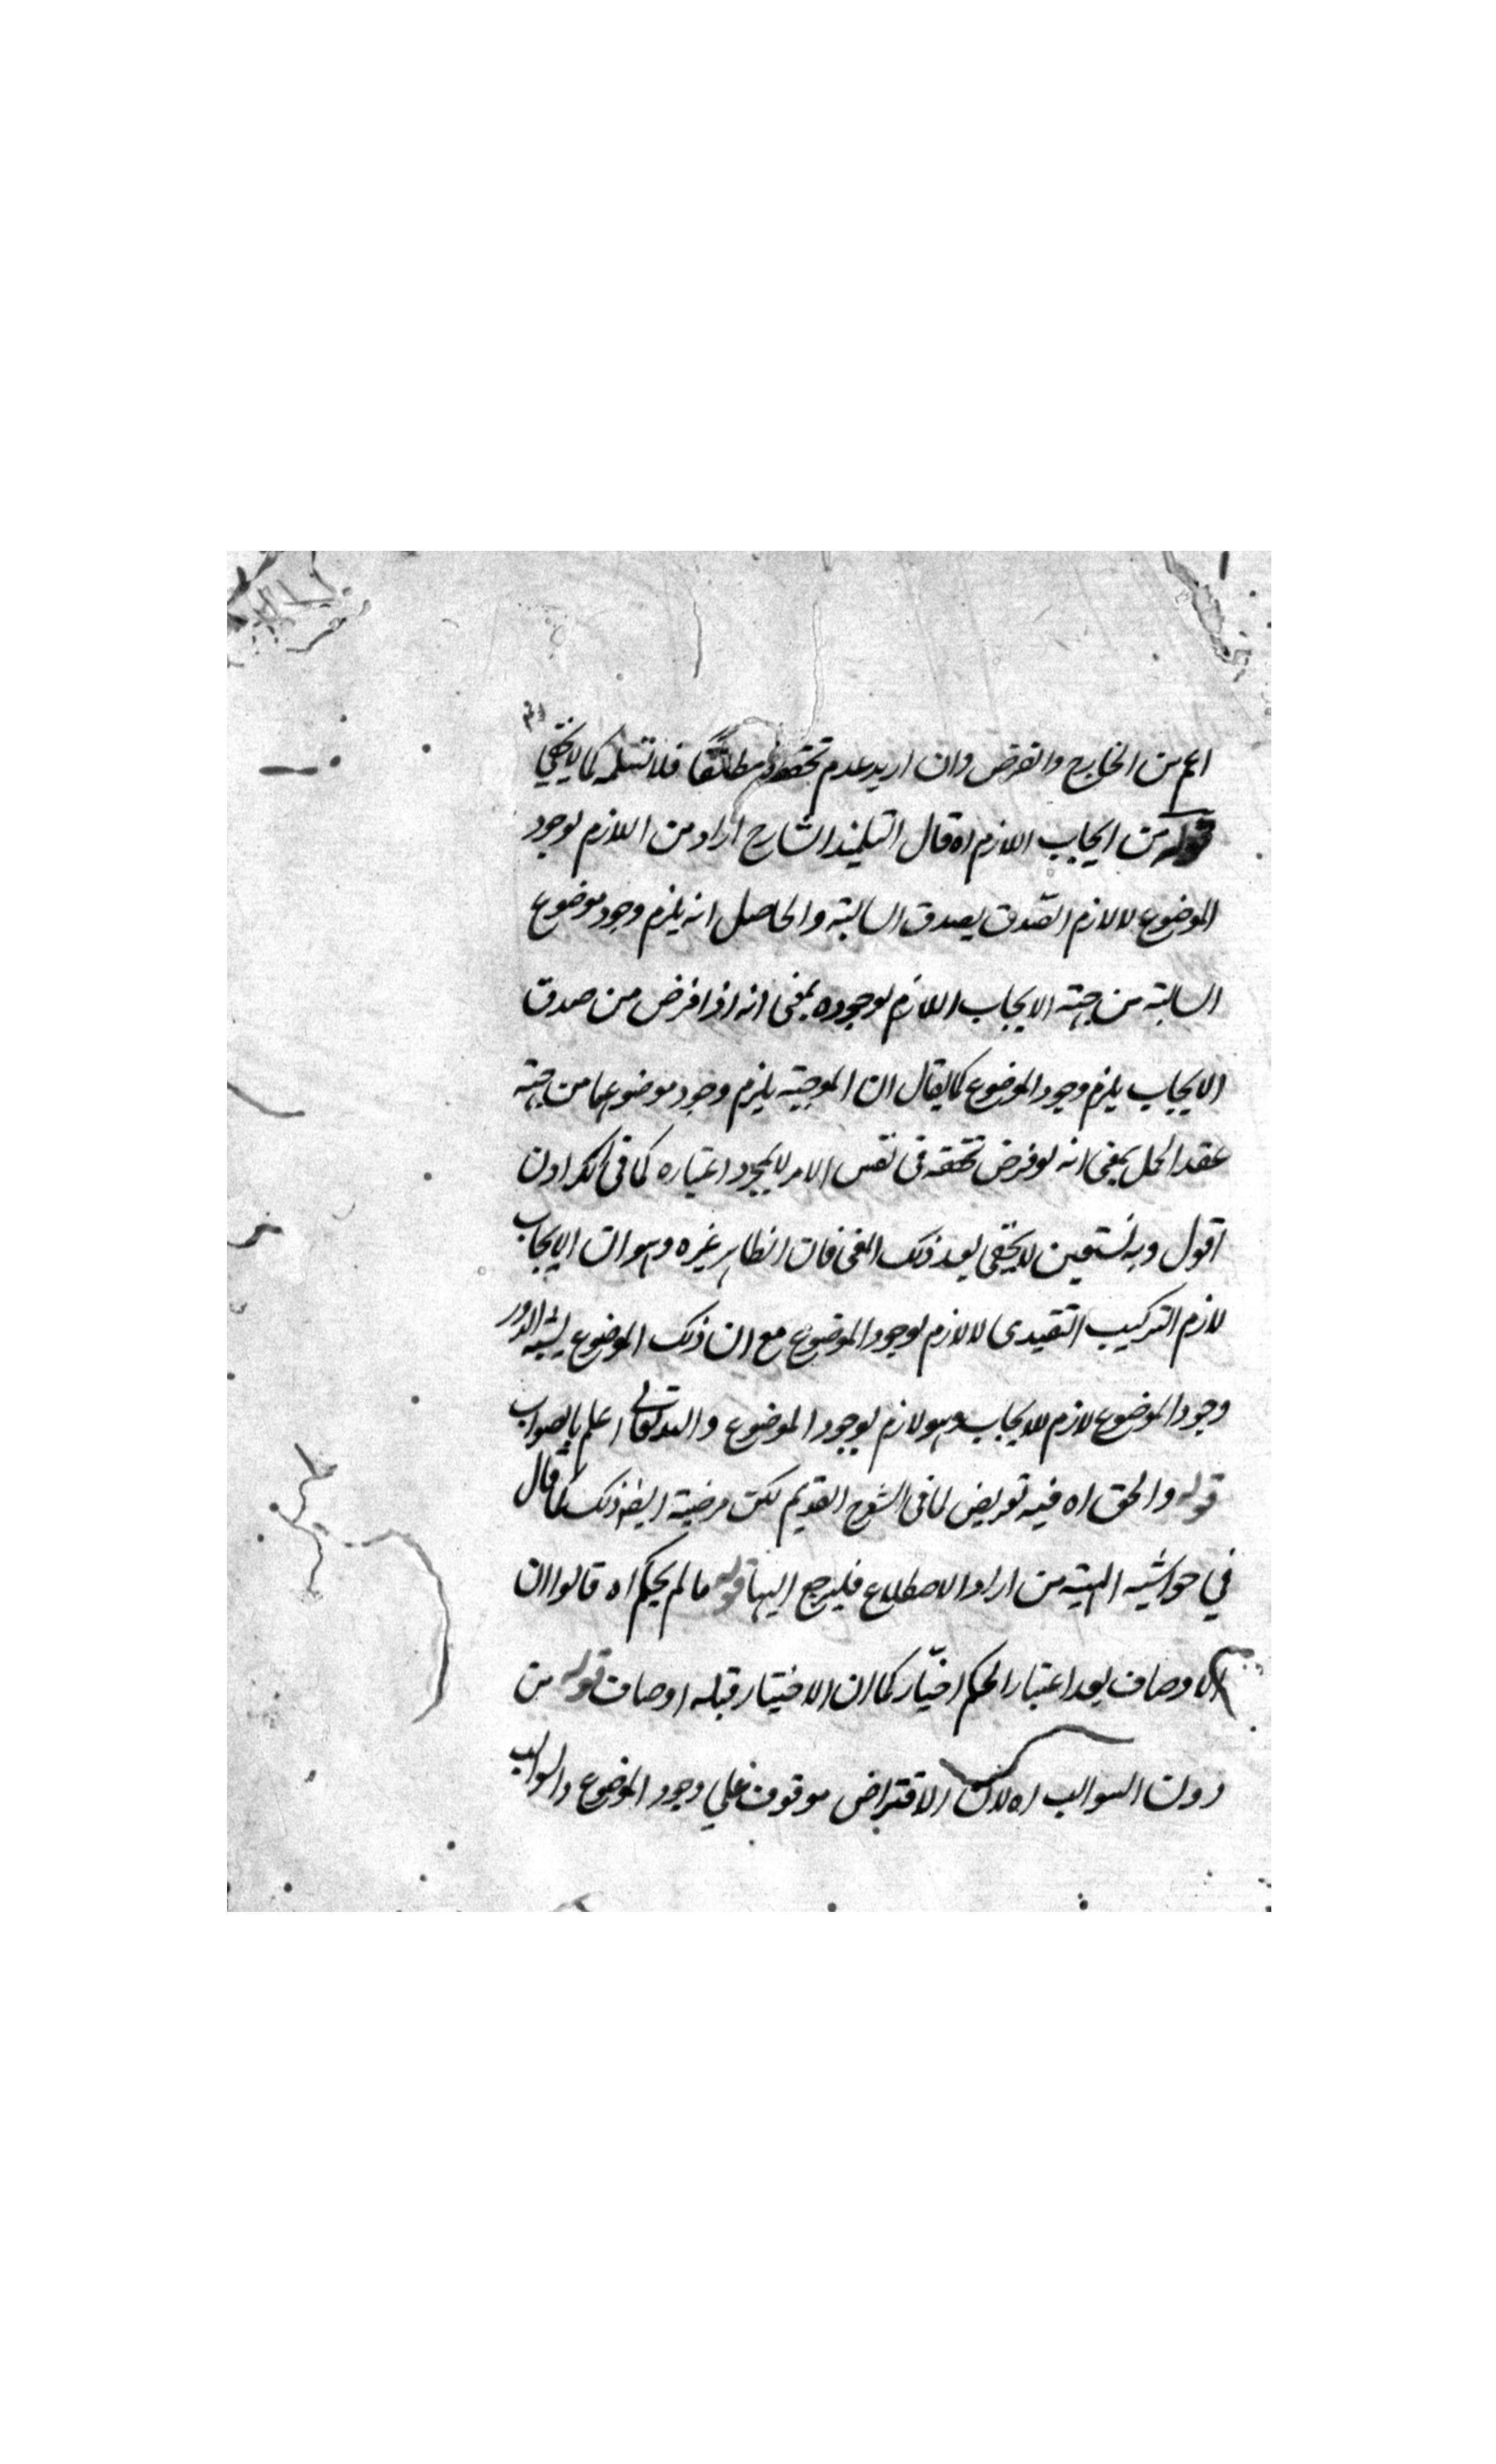 اعم من الخارج والفرض وان اريد عدم تحققه مطلقا فلا نسلمه كما لا يخفى
قوله من ايجاب اللازم اه قال التلميذ الشارح اراد من اللازم لوجود
الموضوع لا لازم الصّدق بصدق السالبة والحاصل انه يلزم وجود موضوع
السالبة من جهة الايجاب اللازم لوجوده بمعنى انه اذا فرض من صدق
الايجاب يلزم وجود الموضوع كما يقال ان الموجبة يلزم وجود موضوعها من جهة
عقد الحمل بمعنى انه لو فرض تحققه في نفس الامر لا بمجرد اعتباره كما في
اقول وبه نستعين لا يخفى بعد ذلك المعنى فان الظاهر غيره وهو ان الايجاب
لازم التركيب التقيدى لا لازم لوجود الموضوع مع ان ذلك الموضوع يشبه الدور
وجود الموضوع لازم للايجاب وهو لازم لوجود الموضوع والله تعالى اعلم بالصواب
قوله والحق اه فيه تعريض لما في الشرح القديم لكن مرضية ايضا ذلك كما قال
في حواشيه المهية من اراد الاصطلاع فليرجع اليها قوله ما لم يحكم اه قالوا ان
الاوصاف بعد اعتبار الحكم اخبار كما ان الاخبار قبله اوصاف قوله من
دون السوالب اه لان الاقتراض موقوف على وجود الموضوع والسوالب